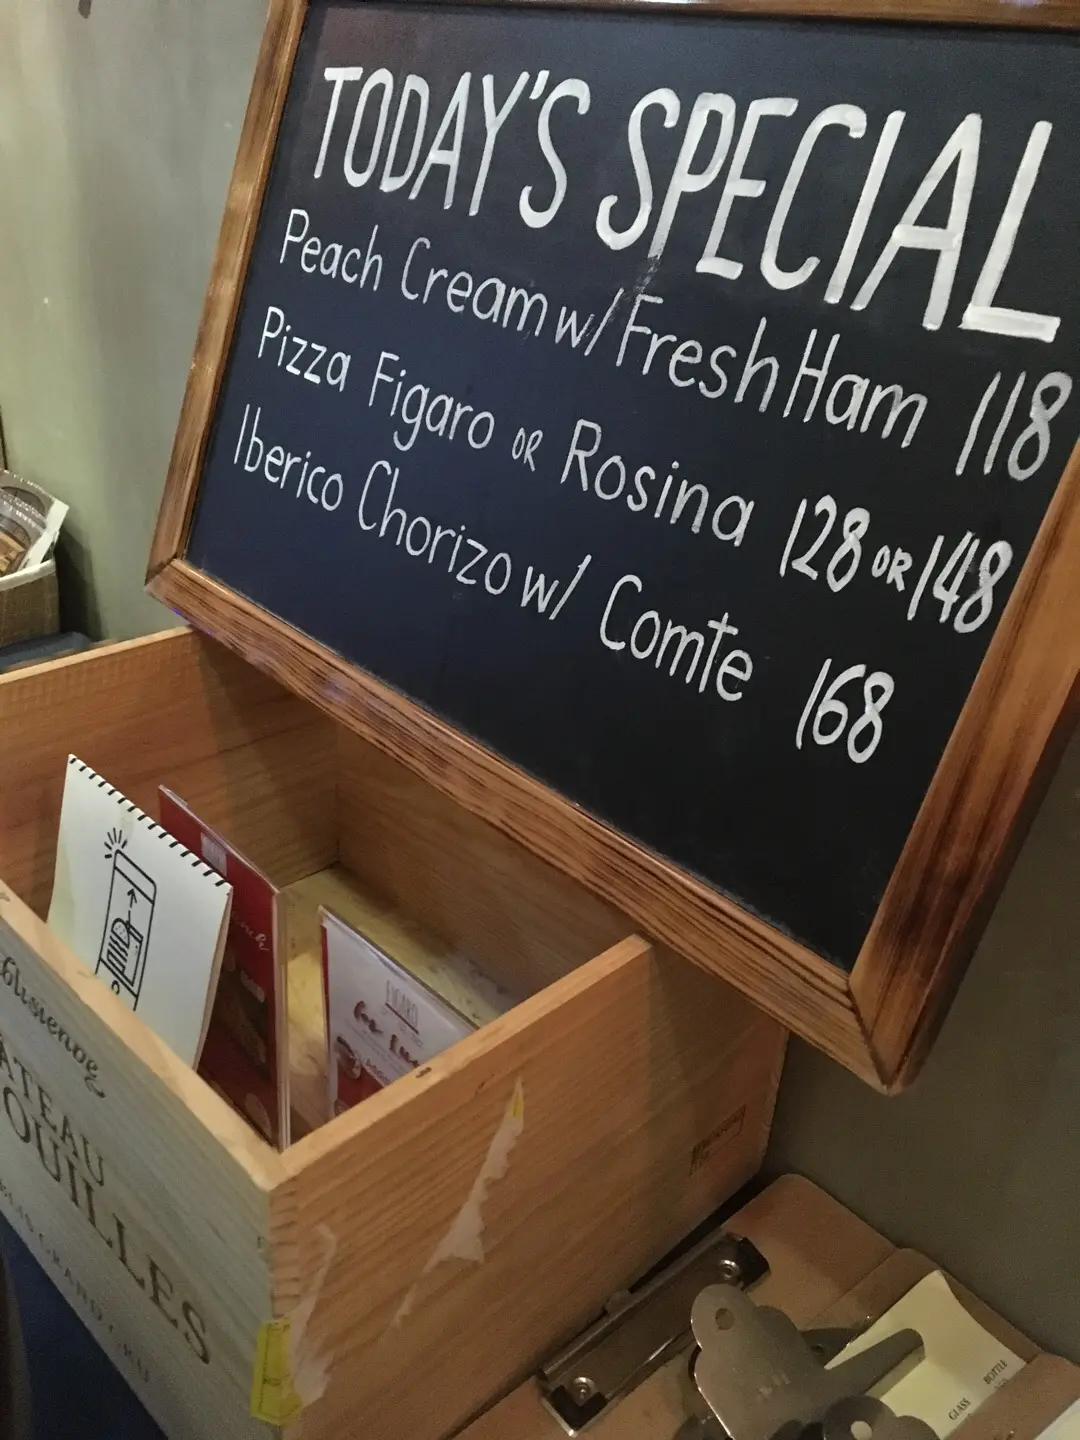 TODAY'S SPECIAL
Peach Cream w/ Fresh Ham 118
Pizza Figaro OR Rosina 128 OR 148
Iberico Chorizo w/ Comte 168
FIGARO
GLASS BOTTLE